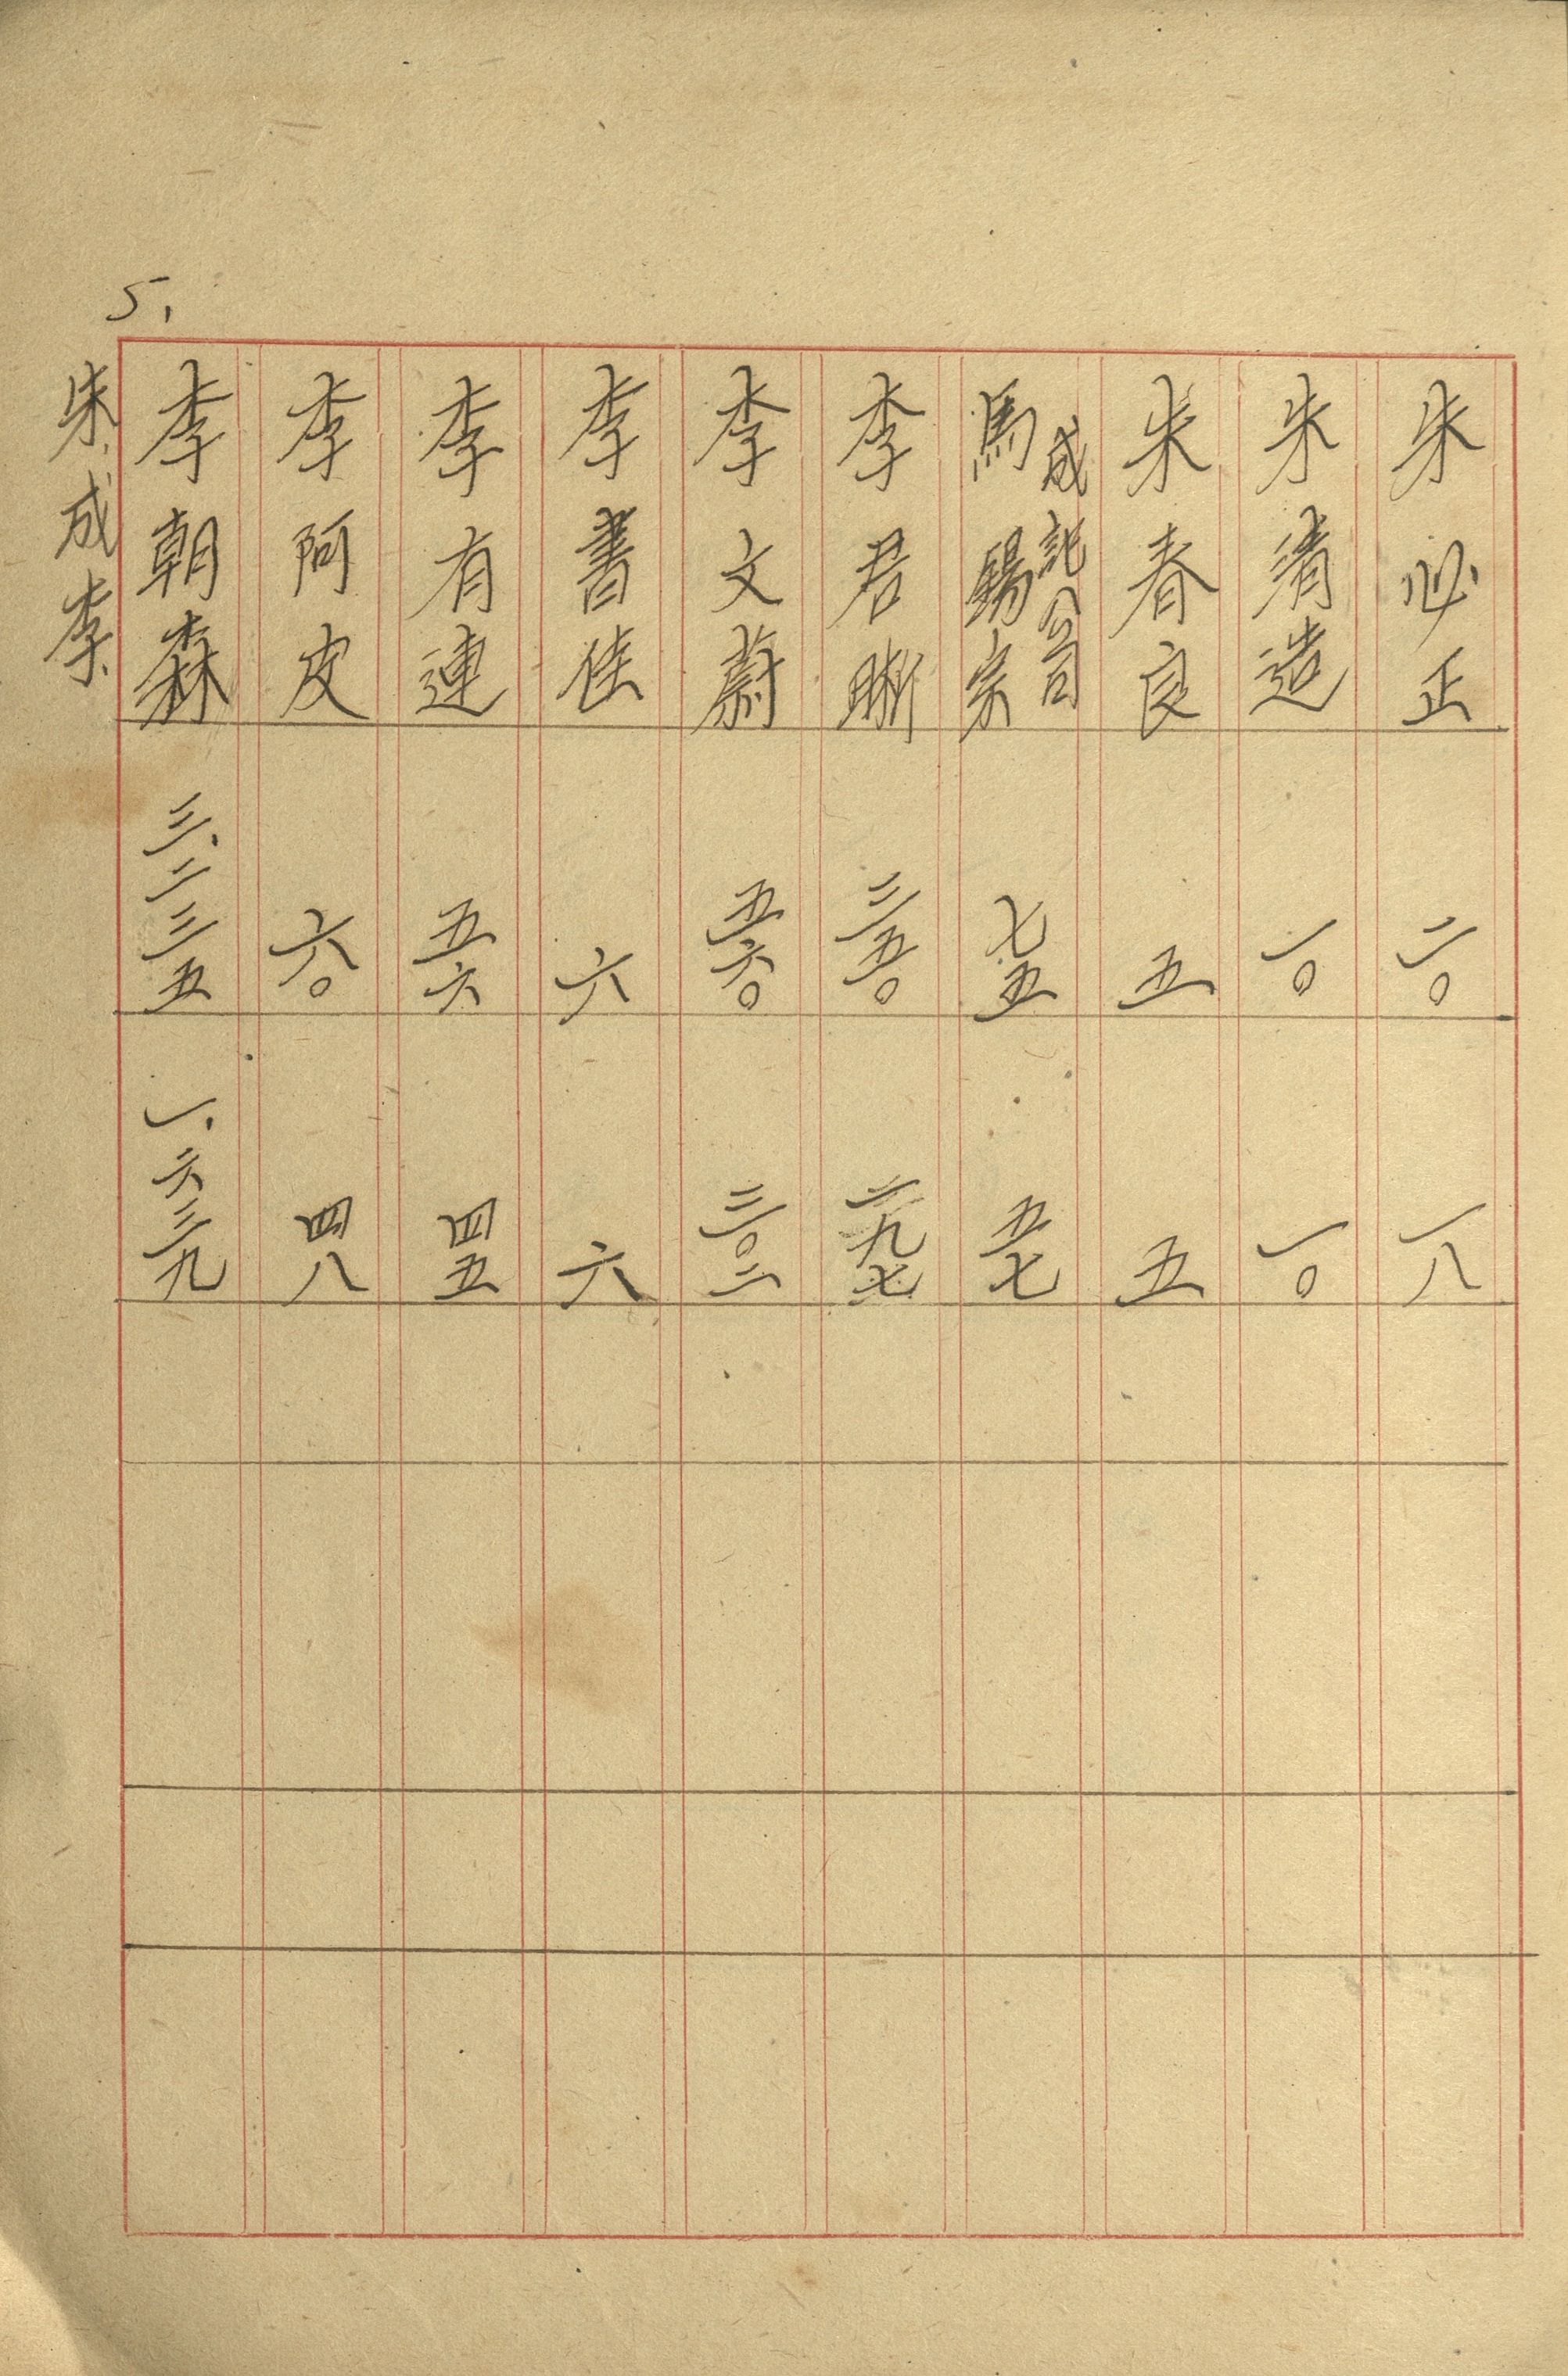 朱必正 二〇 一八
朱清造 一〇 一〇
朱春良 五 五
成記公司
馬錫宗 七五 五七
李君 三五〇 二九七
李文蔚 五六〇 三〇二
李書佳 六 六
李有連 五六 四五
李阿皮 六〇 四八
李朝森 三、二三五 一、六三九
5,
朱、成李、